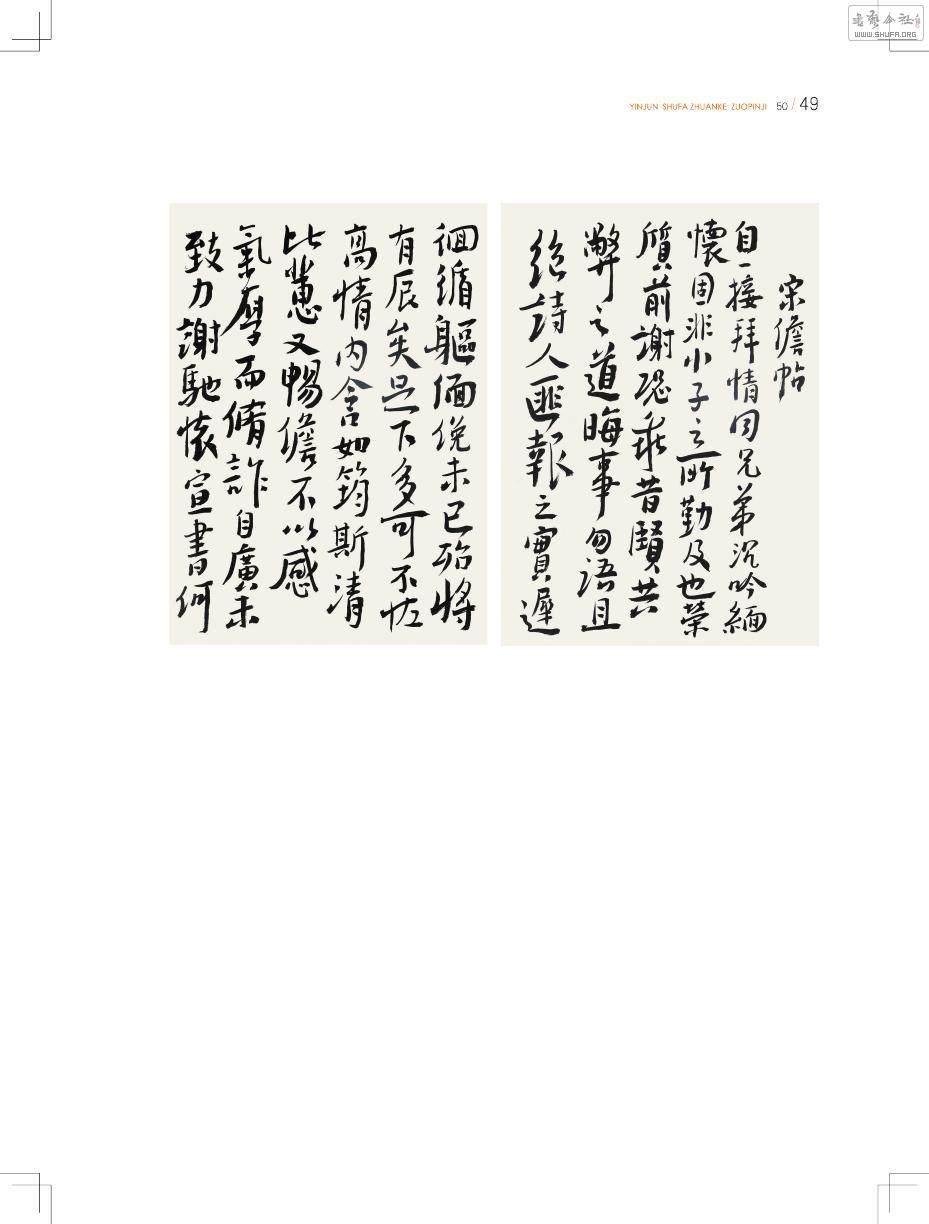 書藝公社
WWW.SHUFA.ORG
YINJUN SHUFA ZHUANKE ZUOPINJI 50 / 49
宋儋帖
自一接拜情同兄弟沉吟緬
懷固非小子之所勤及也榮
質前謝恐乖昔賢共
弊之道晦事勿语且
絕詩人匪報之實遲
徊循軀緬俛未已殆將
有辰矣足下多可不恠
高情内含如筠斯清
比蕙又暢儋不以感
氣摩而脩詐自廣未
致力謝馳懷宣書何